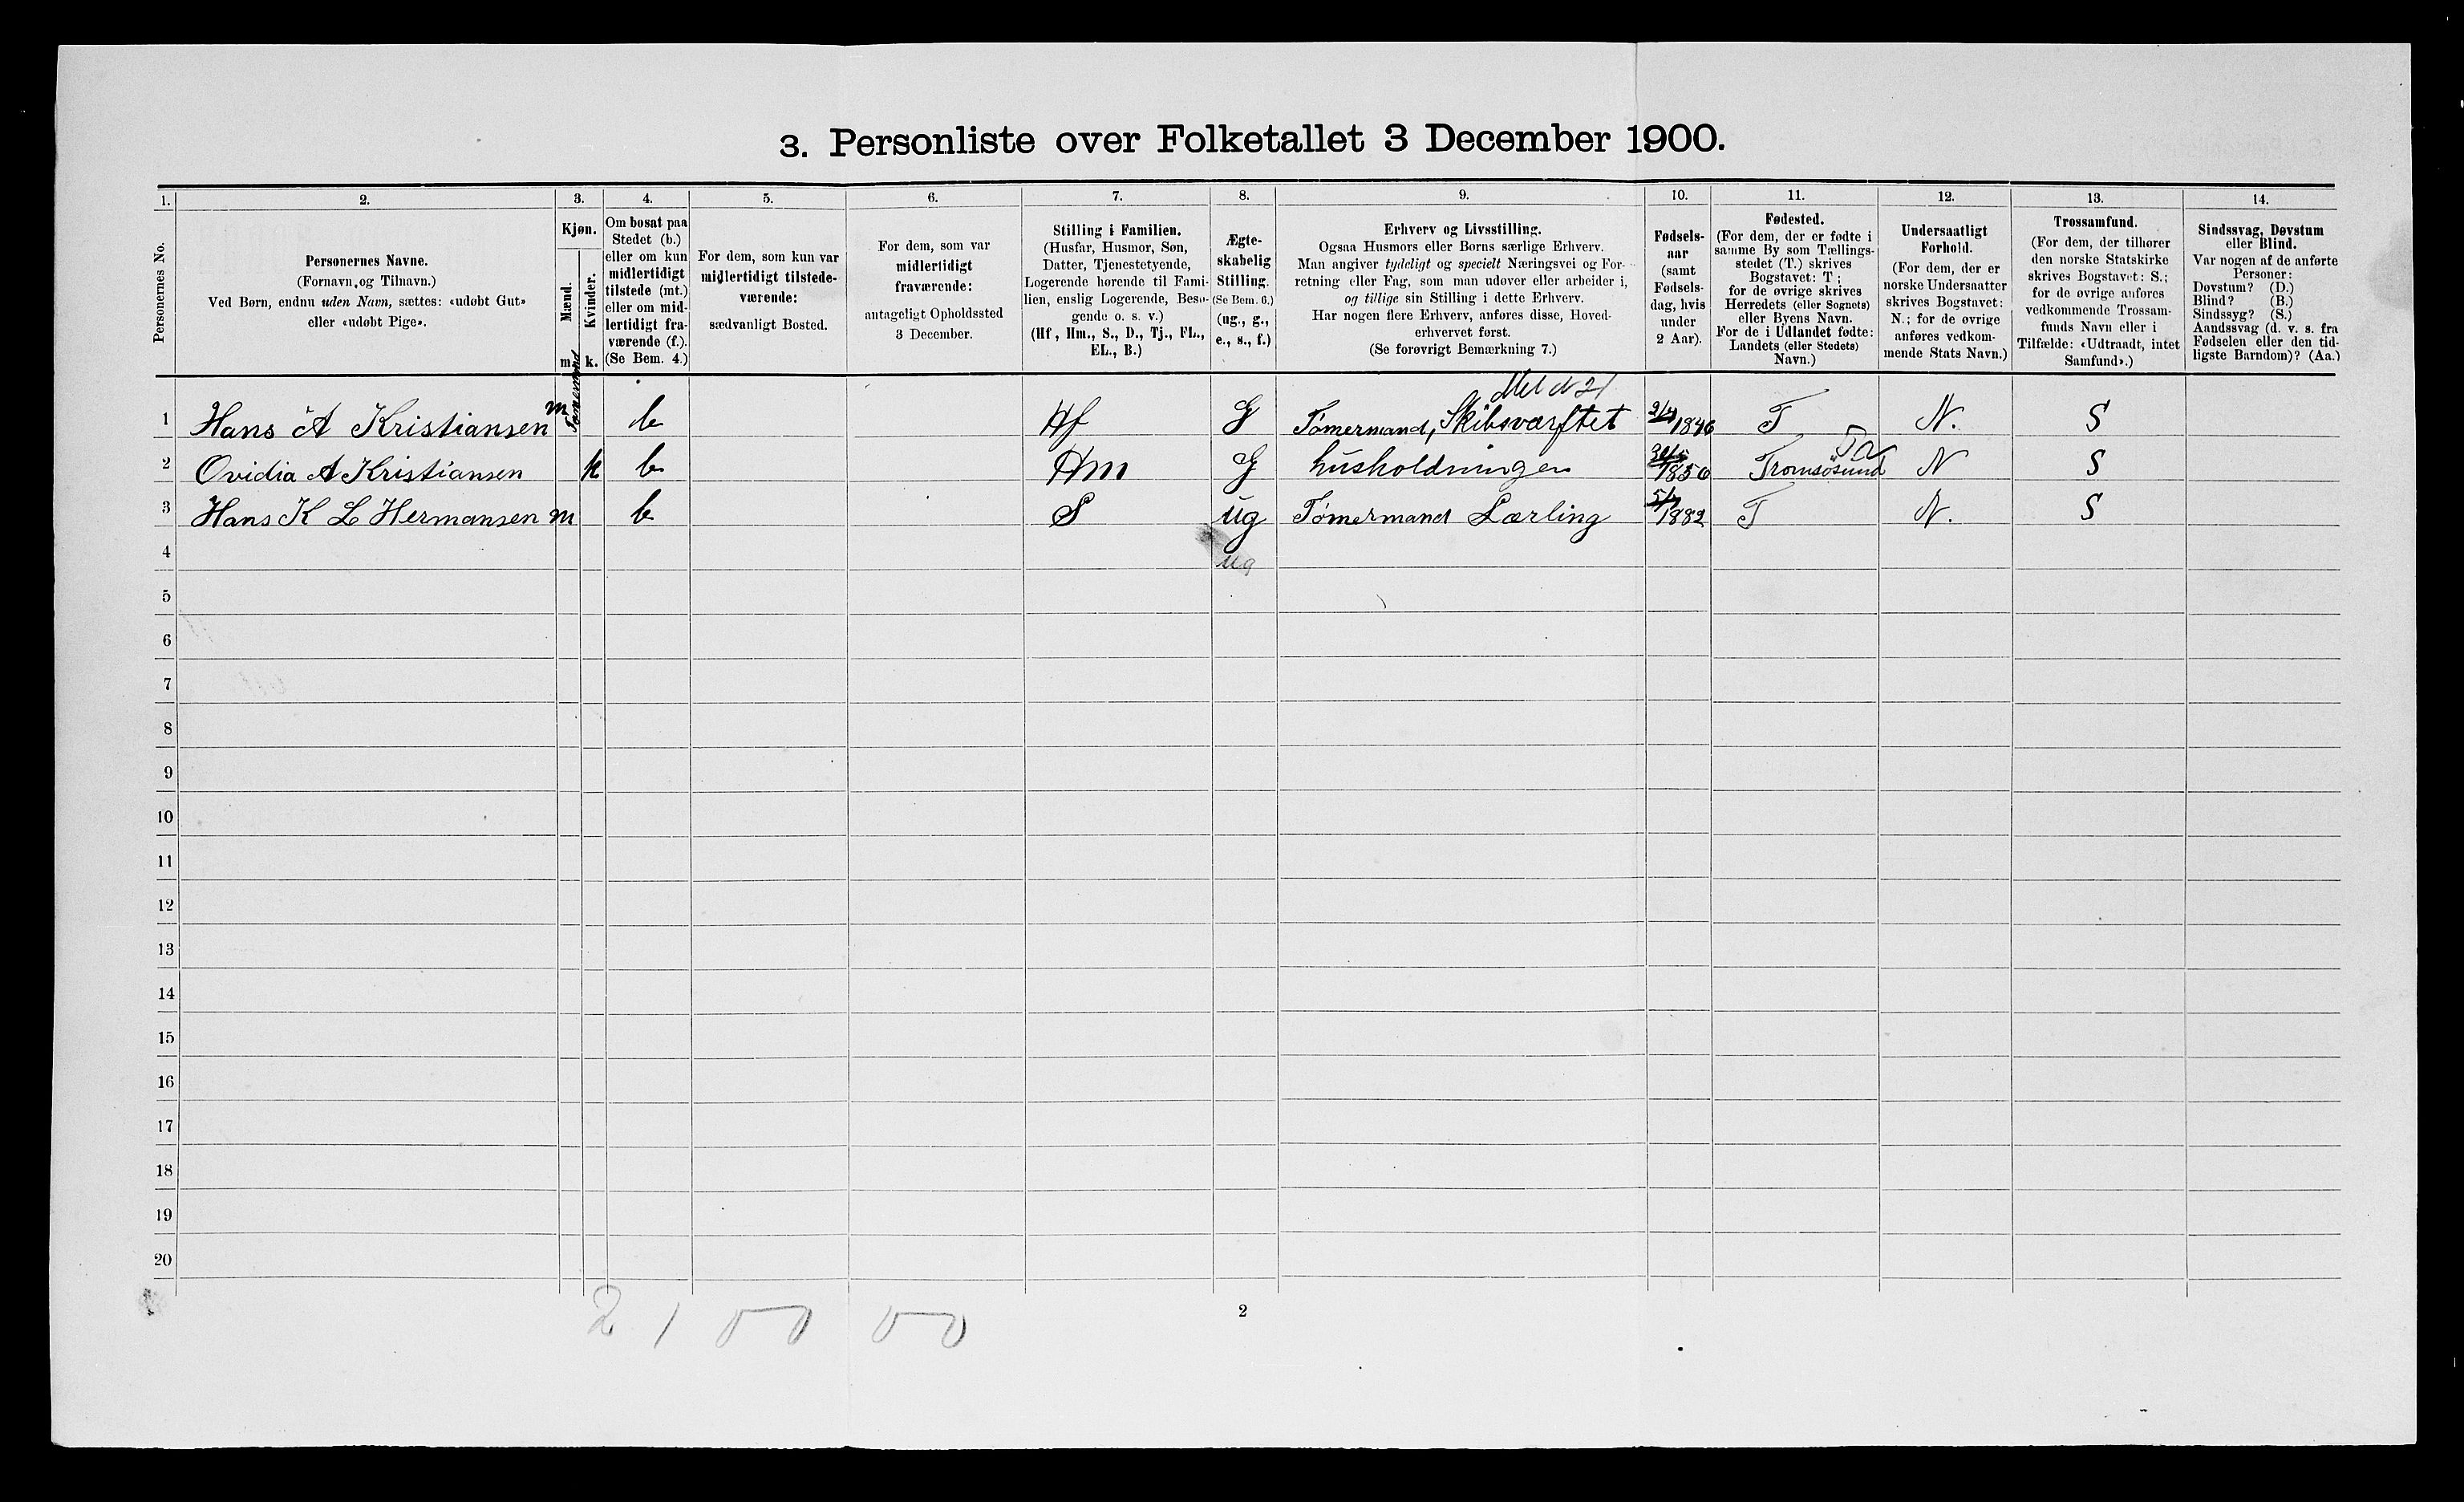 3. Personliste over Folketallet 3 December 1900.
1. 2. 3. 4. 5. 6. 7. 8. 9. 10. 11. 12. 13. 14.
Personernes No.
Personernes Navne.
(Fornavn og Tilnavn.)
Ved Børn, endnu uden Navn, sættes: «udøbt Gut»
eller «udøbt Pige».
Kjøn.
Mænd.
Kvinder.
m. k.
Om bosat paa
Stedet (b.)
eller om kun
midlertidigt
tilstede (mt.)
eller om mid-
lertidigt fra-
værende (f.).
(Se Bem. 4.)
For dem, som kun var
midlertidigt tilstede-
værende:
sædvanligt Bosted.
For dem, som var
midlertidigt
fraværende:
antageligt Opholdssted
3 December.
Stilling i Familien.
(Husfar, Husmor, Søn,
Datter, Tjenestetyende,
Logerende hørende til Fami-
lien, enslig Logerende, Besø-
gende o. s. v.)
(Hf, Hm., S., D., Tj., FL.,
EL., B.)
Ægte-
skabelig
Stilling.
(Se Bem. 6.)
(ug., g.,
e., s., f.)
Erhverv og Livsstilling.
Ogsaa Husmors eller Børns særlige Erhverv.
Man angiver tydeligt og specielt Næringsvei og For-
retning eller Fag, som man udøver eller arbeider i,
og tillige sin Stilling i dette Erhverv.
Har nogen flere Erhverv, anføres disse, Hoved-
erhvervet først.
(Se forøvrigt Bemærkning 7.)
Fødsels-
aar
(samt
Fødsels-
dag, hvis
under
2 Aar).
Fødested.
(For dem, der er fødte i
samme By som Tællings-
stedet (T.) skrives
Bogstavet: T ;
for de øvrige skrives
Herredets (eller Sognets)
eller Byens Navn.
For de i Udlandet fødte:
Landets (eller Stedets)
Navn.)
Undersaatligt
Forhold.
(For dem, der er
norske Undersaatter
skrives Bogstavet:
N.; for de øvrige
anføres vedkom-
mende Stats Navn.)
Trossamfund.
(For dem, der tilhører
den norske Statskirke
skrives Bogstavet: S.;
for de øvrige anføres
vedkommende Trossam-
funds Navn eller i
Tilfælde: «Udtraadt, intet
Samfund».)
Sindssvag, Døvstum
eller Blind.
Var nogen af de anførte
Personer:
Døvstum? (D.)
Blind? (B.)
Sindssyg? (S.)
Aandssvag (d. v. s. fra
Fødselen eller den tid-
ligste Barndom)? (Aa.)
1 Hans A Kristiansen m b Hf G Tømermand, Skibsværftet 1846 T N. S
2 Ovidia A Kristiansen k b Hm G husholdningen 1856 Tromsøsund N S
3 Hans K L Hermansen m b S ug Tømermand Lærling 1882 T N. S
4 ug
5
6
7
8
9
10
11
12
13
14
15
16
17
18
19
20
2 1 00 00
2